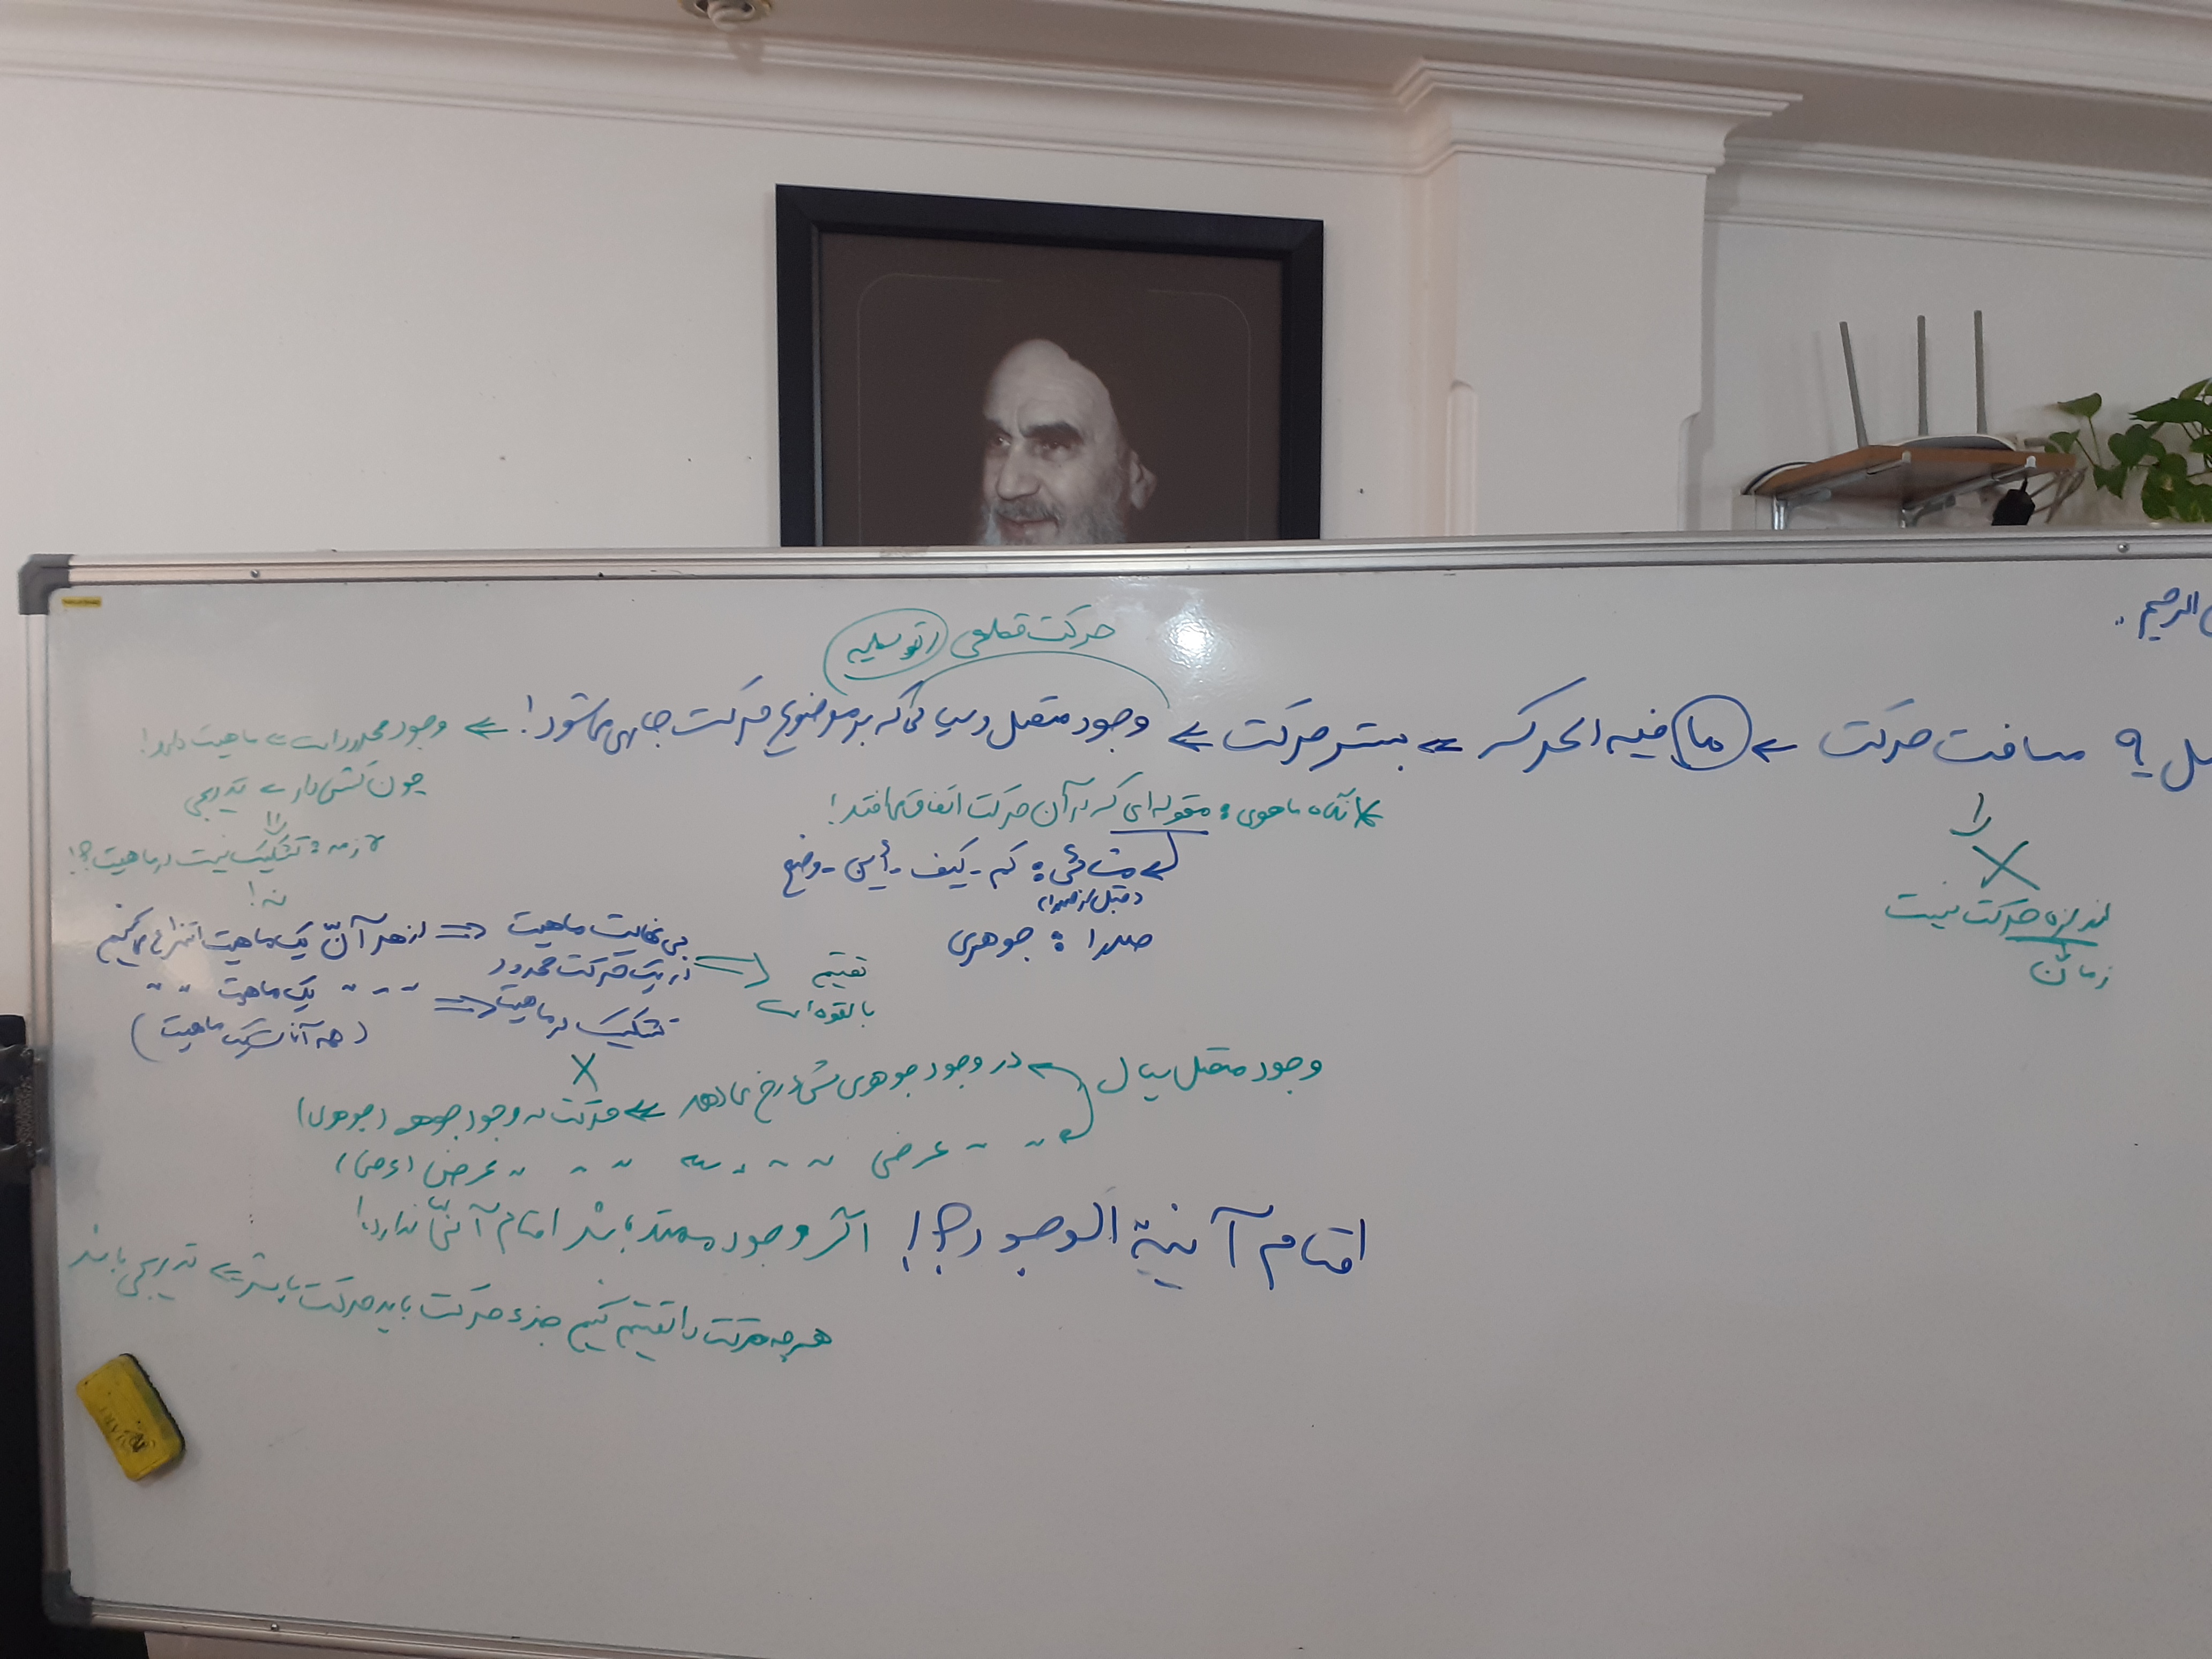 الرحیم..
حرکت قطعی (توسطیه)
فصل ۹ مسافت حرکت ← ما فیه الحرکه ← بستر حرکت ← وجود متصل و سیالی که بر موضوع حرکت جاری می‌شود! ← وجود محدود است ← ماهیت دارد!
چون کشش دارد ← تدریجی
لازمه: تشکیک نیست در ماهیت؟!
نه!
نگاه ماهوی: مقوله‌ای که در آن حرکت اتفاق می‌افتد!
مشائی: کم - کیف - أین - وضع
(قبل از صدرا)
صدرا: جوهری
اندازه حرکت نیست
زمان
تقسیم بالقوه است
بی نهایت ماهیت در یک حرکت محدود ⇐ از هر آنّ یک ماهیت انتزاع می‌کنیم
تشکیک در ماهیت ⇐ " " " یک ماهیت " "
(همه آنات یک ماهیت)
وجود متصل سیال ← در وجود جوهری شیء رخ می‌دهد ← حرکت در وجود جوهر (جوهری)
" " عرضی " " " ← " " عرض (عرضی)
اقسام آنیّة الوجود؟! اگر وجود ممتد باشد اقسام آنیّ ندارد!
هرچه حرکت را تقسیم کنیم جزء حرکت باید حرکت باشد ← تدریجی باشد